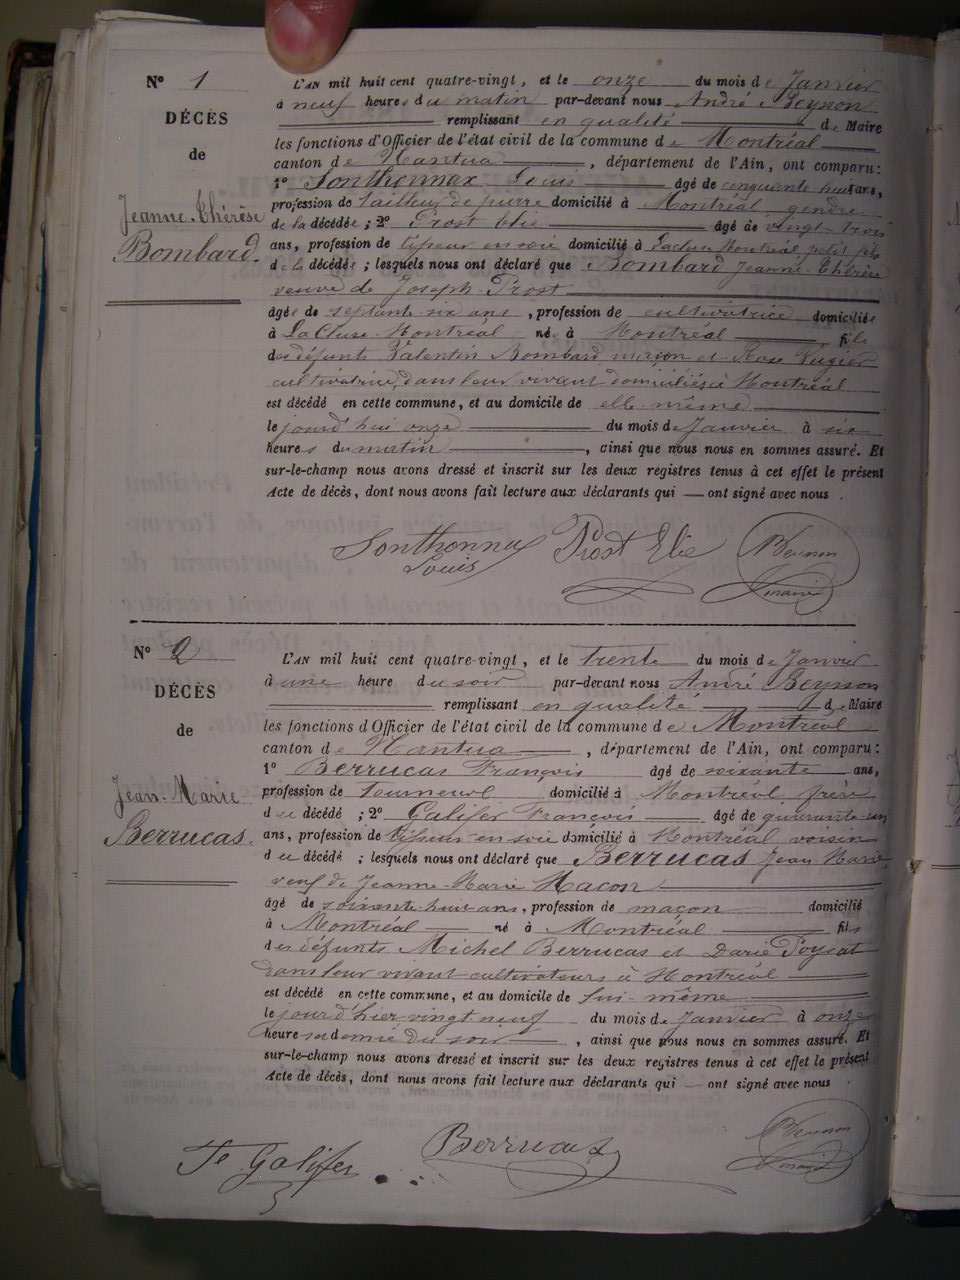 N° 1
DÉCÈS
de
Jeanne-Thérèse
Bombard.
L'AN mil huit cent quatre-vingt, et le onze du mois de Janvier
à neuf heures du matin par-devant nous André Beysson
remplissant en qualité de Maire
les fonctions d'Officier de l'état civil de la commune de Montréal
canton de Nantua, département de l'Ain, ont comparu:
1° Sonthonnax Louis âgé de cinquante huit ans,
profession de tailleur de pierre domicilié à Montréal gendre
de la décédée; 2° Prost Elie âgé de vingt-trois
ans, profession de tisseur en soie domicilié à Lacluse Montréal petit fils
de la décédée; lesquels nous ont déclaré que Bombard Jeanne-Thérèse
veuve de Joseph Prost
âgée de septante six ans, profession de cultivatrice domiciliée
à La Cluse-Montréal née à Montréal fille
des défunts Valentin Bombard maçon et Rose Vugier
cultivatrice, dans leur vivant domiciliés à Montréal
est décédé en cette commune, et au domicile de elle-même
le jourd'hui onze du mois de Janvier à six
heures du matin, ainsi que nous nous en sommes assuré. Et
sur-le-champ nous avons dressé et inscrit sur les deux registres tenus à cet effet le présent
Acte de décès, dont nous avons fait lecture aux déclarants qui — ont signé avec nous.
Sonthonnax Louis Prost Elie Beysson maire
N° 2
DÉCÈS
de
Jean-Marie
Berrucas.
L'AN mil huit cent quatre-vingt, et le trente du mois de Janvier
à une heure du soir par-devant nous André Beysson
remplissant en qualité de Maire
les fonctions d'Officier de l'état civil de la commune de Montréal
canton de Nantua, département de l'Ain, ont comparu:
1° Berrucas François âgé de soixante ans,
profession de tourneur domicilié à Montréal frère
du décédé; 2° Galifer François âgé de quarante-un
ans, profession de tisseur en soie domicilié à Montréal voisin
du décédé; lesquels nous ont déclaré que Berrucas Jean Marie
veuf de Jeanne-Marie Macon
âgé de soixante-huit ans, profession de maçon domicilié
à Montréal né à Montréal fils
des défunts Michel Berrucas et Darie
dans leur vivant cultivateurs à Montréal
est décédé en cette commune, et au domicile de lui-même
le jourd'hier vingt neuf du mois de Janvier à onze
heures et demie du soir, ainsi que nous nous en sommes assuré. Et
sur-le-champ nous avons dressé et inscrit sur les deux registres tenus à cet effet le présent
Acte de décès, dont nous avons fait lecture aux déclarants qui — ont signé avec nous
Galifer Berrucas Beysson maire